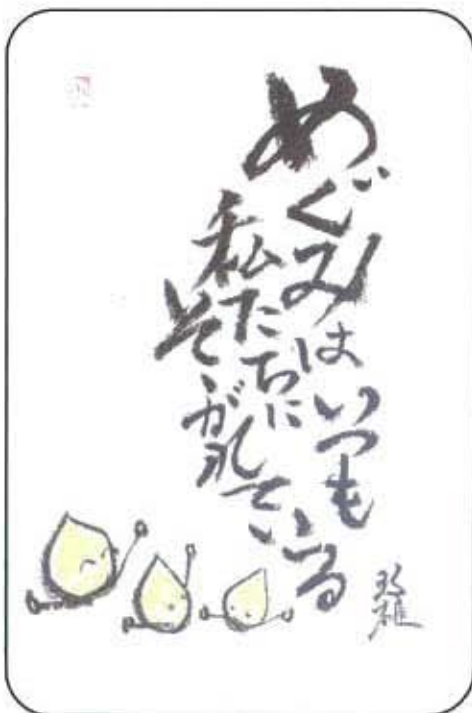 めぐみはいつも
私たちに
そゝがれている